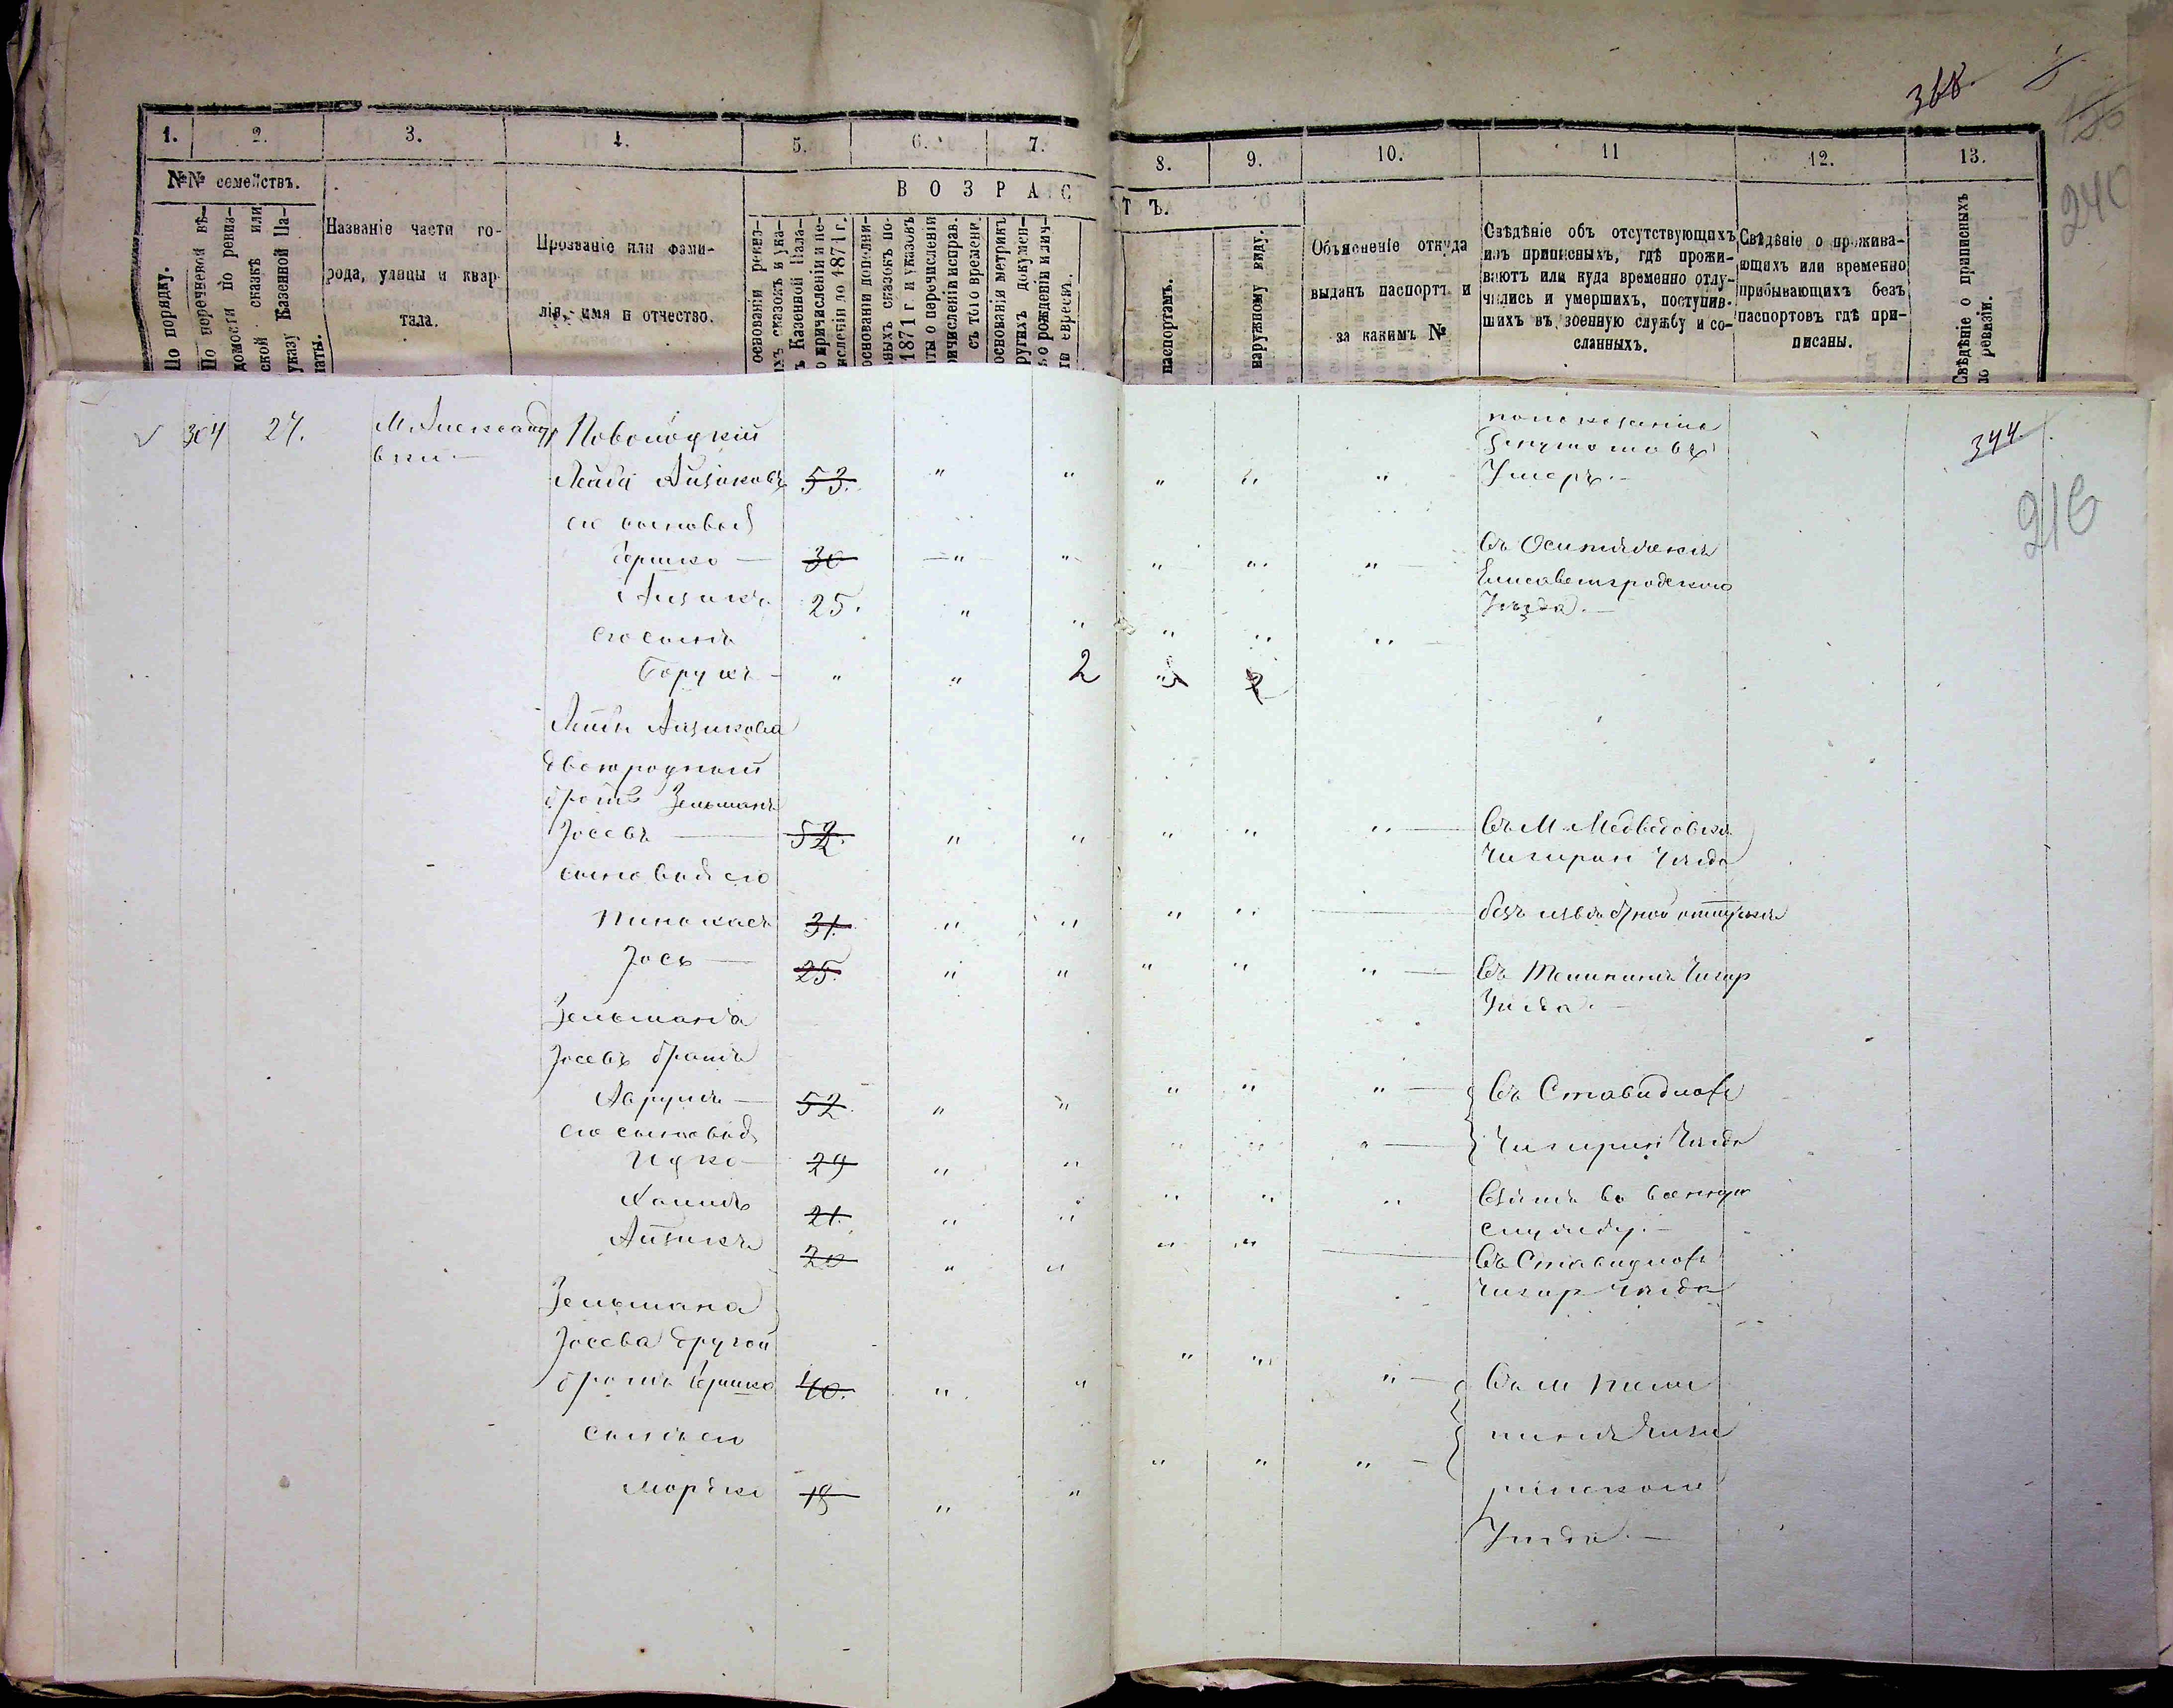 368.
240
1. 2. 3. 4. 5. 6. 7. 8. 9. 10. 11 12. 13.
№№ семействъ.
По порядку.
По перечневой вѣ-
домости по ревиз-
ской сказкѣ или
указу Казенной Па-
латы.
Названіе части го-
рода, улицы и квар-
тала.
Прозваніе или фами-
лія, имя и отчество.
ВОЗРАСТЪ.
основаніи ревиз-
хъ сказокъ и ука-
ъ Казенной Пала-
о причисленіи и пе-
исленіи до 1871 г.
основаніи дополни-
ныхъ сказокъ по-
1871 г. и указовъ
ты о перечисленіи
ричисленіи исправ.
съ того времени.
основаніи метрикъ
ругихъ докумен-
ъ о рожденіи и лич-
ти евреевъ.
паспортамъ.
наружному виду.
Объясненіе откуда
выданъ паспортъ и
за какимъ №
Свѣдѣніе объ отсутствующихъ
изъ приписныхъ, гдѣ прожи-
ваютъ или куда временно отлу-
чились и умершихъ, поступив-
шихъ въ военную службу и со-
сланныхъ.
Свѣдѣніе о прожива-
ющихъ или временно
прибывающихъ безъ
паспортовъ гдѣ при-
писаны.
Свѣдѣніе о приписныхъ
по ревизіи.
344.
216
304 27. М. Александ
Новолоцкій
по показанію
депутатовъ
Лейба Айзиковъ 53. " " " " " Умеръ.
его сыновья
Гершко 30 " " " " " въ
Елисаветградскаго
Уѣзда.
Айзикъ 25. " " " " "
его сынъ
Борухъ " " 2 " 2
Лейбы Айзикова
двоюродный
братъ Зельманъ
Іосевъ 52. " " " " " въ М. Медведовкѣ
Чигирин Уѣзда
сыновья его
Пинхасъ 31. " " " " безъ отлучкѣ
Іось 25. " " " " " въ Телепинѣ Чигир
Уѣзда.
Зельмана
Іосевъ братъ
Аврумъ 52 " " " " " въ Ставидлахъ
его сыновья
Ицко 29 " " " " " Чигирин Уѣзда
Хаимъ 21. " " " " " Взятъ въ военную
службу.
Айзикъ 20 " " " " въ Ставидлахъ
Чигир Уѣзда
Зельмана
Іосева другой
братъ Гершко 40. " " " " " въ м Теле
пинѣ Чиги
сынъ его
Мордко 18 " " " " " ринскаго
Уѣзда.